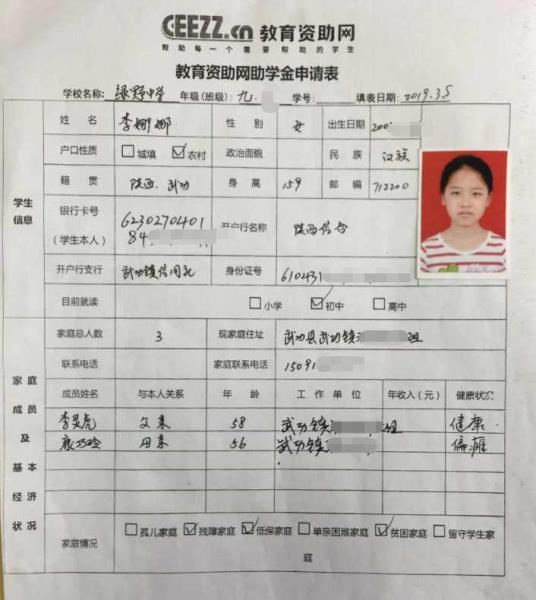 CEEZZ.cn 教育资助网
帮助每一个需要帮助的学生
教育资助网助学金申请表
学校名称: 绿野中学 年级(班级): 九. 学号: 填表日期: 2019.3.5
姓名 李娜娜 性别 女 出生日期 200
户口性质 □城填 ☑农村 政治面貌 民族 汉族
学生信息
籍贯 陕西.武功 身高 159 邮编 712200
银行卡号 (学生本人) 6230270401 84 开户行名称 陕西信合
开户行支行 武功镇信用社 身份证号 610431
目前就读 □小学 ☑初中 □高中
家庭总人数 3 现家庭住址 武功县武功镇 组
联系电话 家庭联系电话 15091
家庭成员及基本经济状况
成员姓名 与本人关系 年龄 工作单位 年收入(元) 健康状况
李灵虎 父亲 58 武功镇 组 健康
康巧玲 母亲 56 武功镇 偏瘫
家庭情况 □孤儿家庭 ☑残障家庭 ☑低保家庭 □单亲困难家庭 ☑贫困家庭 □留守学生家庭